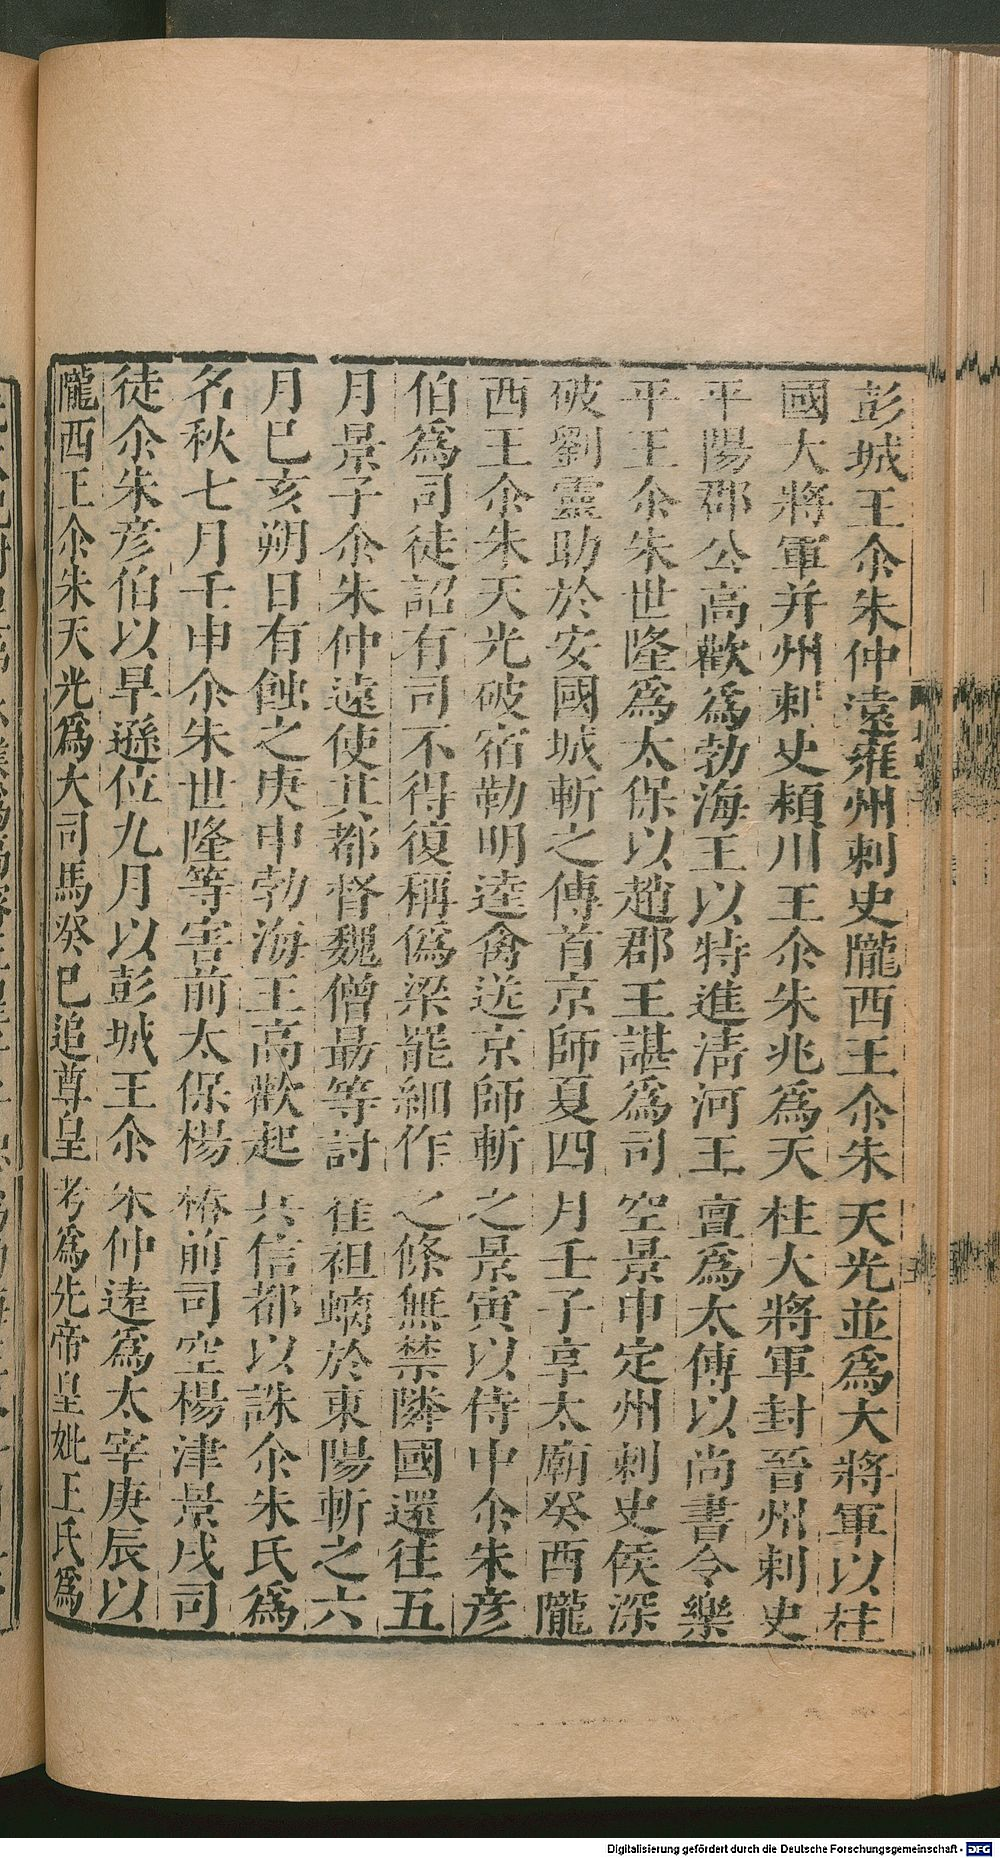 彭城王尒朱仲遠雍州刺史隴西王尒朱天光並爲大將軍以柱
國大將軍并州刺史潁川王尒朱兆爲天柱大將軍封晉州刺史
平陽郡公高歡爲勃海王以特進淸河王亶爲太傅以尚書令樂
平王尒朱世隆爲太保以趙郡王諶爲司空景申定州刺史侯深
破劉靈助於安國城斬之傳首京師夏四月壬子享太廟癸酉隴
西王尒朱天光破宿勒明逹禽送京師斬之景寅以侍中尒朱彦
伯爲司徒詔有司不得復稱僞梁罷細作之條無禁隣國還往五
月景子尒朱仲遠使其都督魏僧最等討崔祖螭於東陽斬之六
月巳亥朔日有蝕之庚申勃海王高歡起兵信都以誅尒朱氏爲
名秋七月壬申尒朱世隆等害前太保楊椿前司空楊津景戌司
徒尒朱彦伯以旱遜位九月以彭城王尒朱仲遠爲太宰庚辰以
隴西王尒朱天光爲大司馬癸巳追尊皇考爲先帝皇妣王氏爲
Digitalisierung gefördert durch die Deutsche Forschungsgemeinschaft - DFG